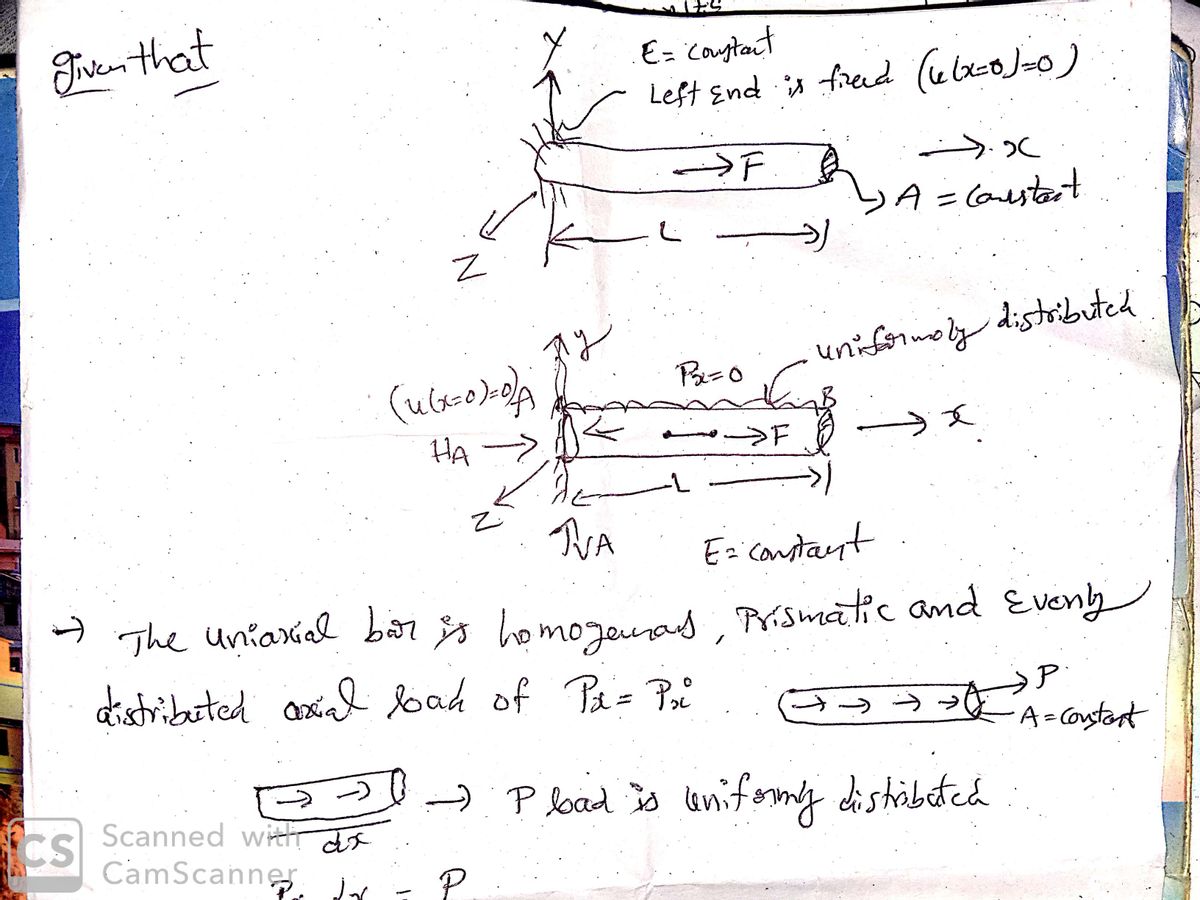 Given that
Y
E = constant
Left End is fixed (u(x=0)=0)
→ F
→ x
A = constant
L
Z
y
uniformoly distributed
Px=0
(u(x=0)=0) A
B
HA →
→ F
→ x
L
Z
VA
E = constant
→ The uniaxial bar is homogenous, Prismatic and Evenly
distributed axial load of Px = Pxi
P
A = constant
→ P load is uniformly distributed
dx
CS Scanned with
CamScanner
dx = P